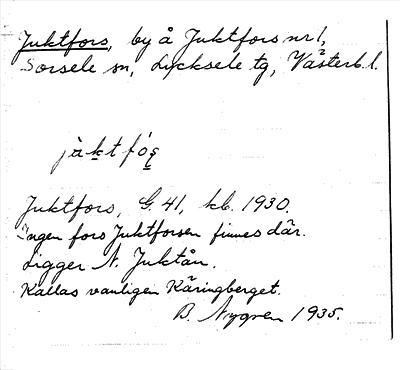 Juktfors, by å Juktfors nr 1,
Sorsele sn, Lycksele tg, Västerb. l.
jàktfós̨
Juktfors, G. 41, kb. 1930.
Ingen fors Juktforsen finnes där.
Ligger N. Juktån.
Kallas vanligen Käringberget.
B. Nygren 1935.